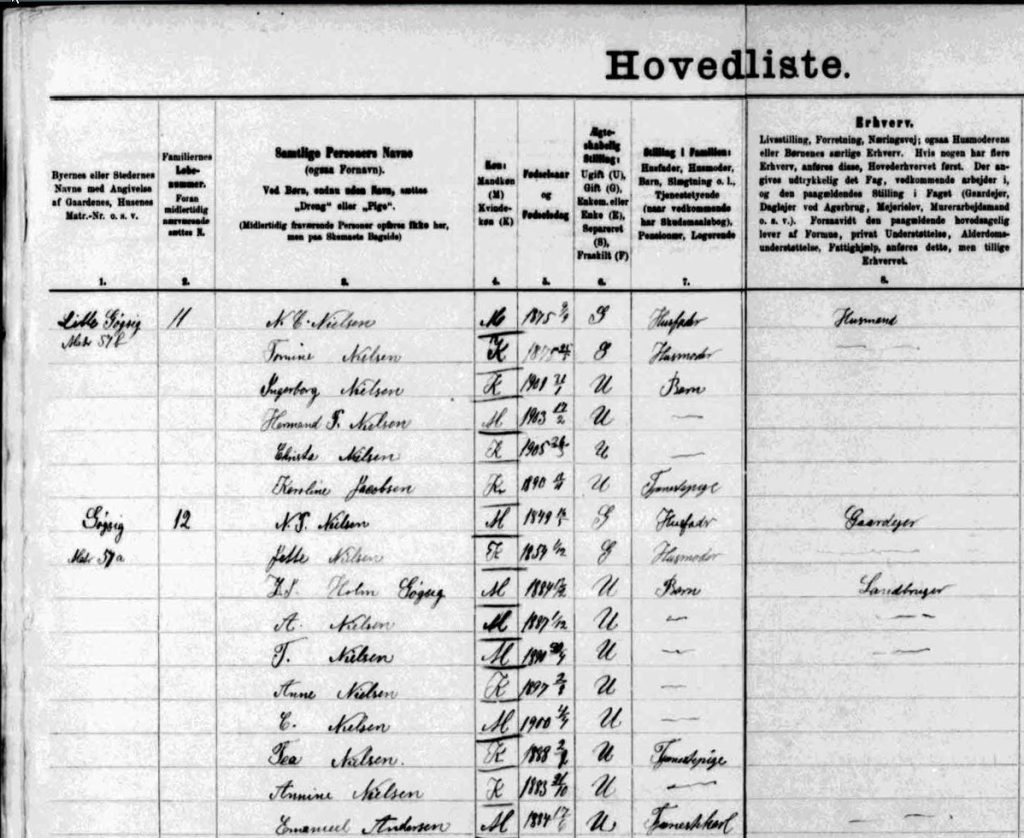 Hovedliste.
Byernes eller Stedernes
Navne med Angivelse
af Gaardenes, Husenes
Matr.-Nr. o. s. v.
Familiernes
Løbe-
nummer.
Foran
midlertidig
nærværende
sættes N.
Samtlige Personers Navne
(ogsaa Fornavn).
Ved Børn, endnu uden Navn, sættes
„Dreng" eller „Pige".
(Midlertidig fraværende Personer opføres ikke her,
men paa Skemaets Bagside)
Køn:
Mandkøn
(M)
Kvinde-
køn (K)
Fødselsaar
og
Fødselsdag
Ægte-
skabelig
Stilling:
Ugift (U),
Gift (G),
Enkem. eller
Enke (E),
Separeret
(S),
Fraskilt (F)
Stilling i Familien:
Husfader, Husmoder,
Barn, Slægtning o. l.,
Tjenestetyende
(naar vedkommende
har Skudsmaalsbog),
Pensionær, Logerende
Erhverv.
Livsstilling, Forretning, Næringsvej; ogsaa Husmoderens
eller Børnenes særlige Erhverv. Hvis nogen har flere
Erhverv, anføres disse, Hovederhvervet først. Der an-
gives udtrykkelig det Fag, vedkommende arbejder i,
og den paagældendes Stilling i Faget (Gaardejer,
Daglejer ved Agerbrug, Mejerielev, Murerarbejdsmand
o. s. v.). Formavidt den paagældende hovedsagelig
lever af Formue, privat Understøttelse, Alderdoms-
understøttelse, Fattighjælp, anføres dette, men tillige
Erhvervet.
1. 2. 3. 4. 5. 6. 7. 8.
Lille Gøgsig 11 N. C. Nielsen M 1875 G Husfadr Husmand
Matr 57b Tomine Nielsen K 1875 G Husmoder
Ingerborg Nielsen K 1901 U Barn
Hermand P. Nielsen M 1903 17/2 U —
Christa Nielsen K 1905 U —
Karoline Jacobsen K 1890 U Tjenestepige
Gøgsig 12 N. P. Nielsen M 1849 G Husfadr Gaardejer
Matr 57a Jette Nielsen K 1854 1/12 G Husmoder
Holm Gøgsig M 1884 U Barn Landbruger
A. Nielsen M 1887 1/12 U —
T. Nielsen M U —
Anne Nielsen K 1897 2/8 U —
C. Nielsen M 1900 U —
Tea Nielsen. K 1888 U Tjenestepige
Annine Nielsen K 1883 U —
Emanuel Andersen M 1884 U Tjenestekarl